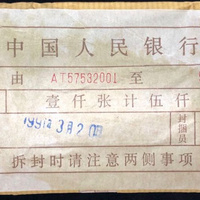 中国人民银行
由 AT57532001 至
壹仟张计伍仟
1991年3月2日
封捆员
拆封时请注意两侧事项